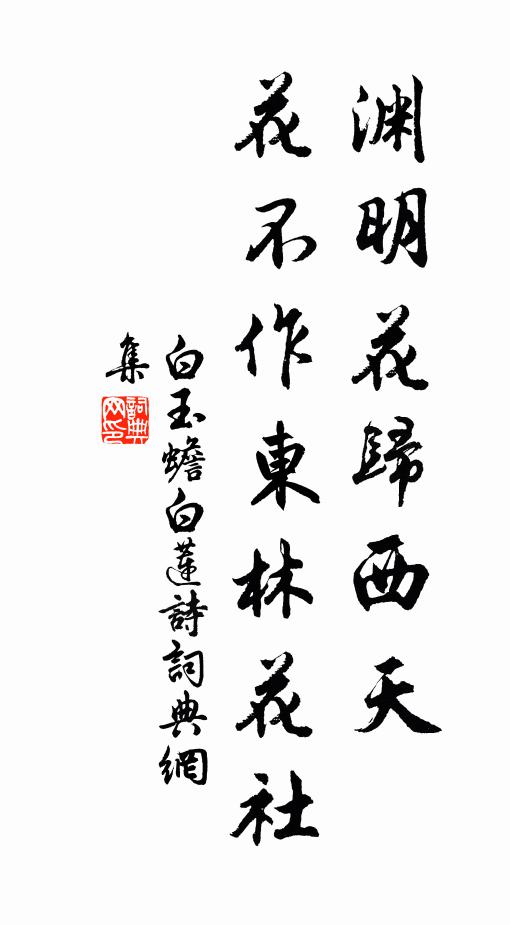 渊明花歸西天
花不作東林花社
白玉蟾白蓮詩詞典網
集
詞典网印